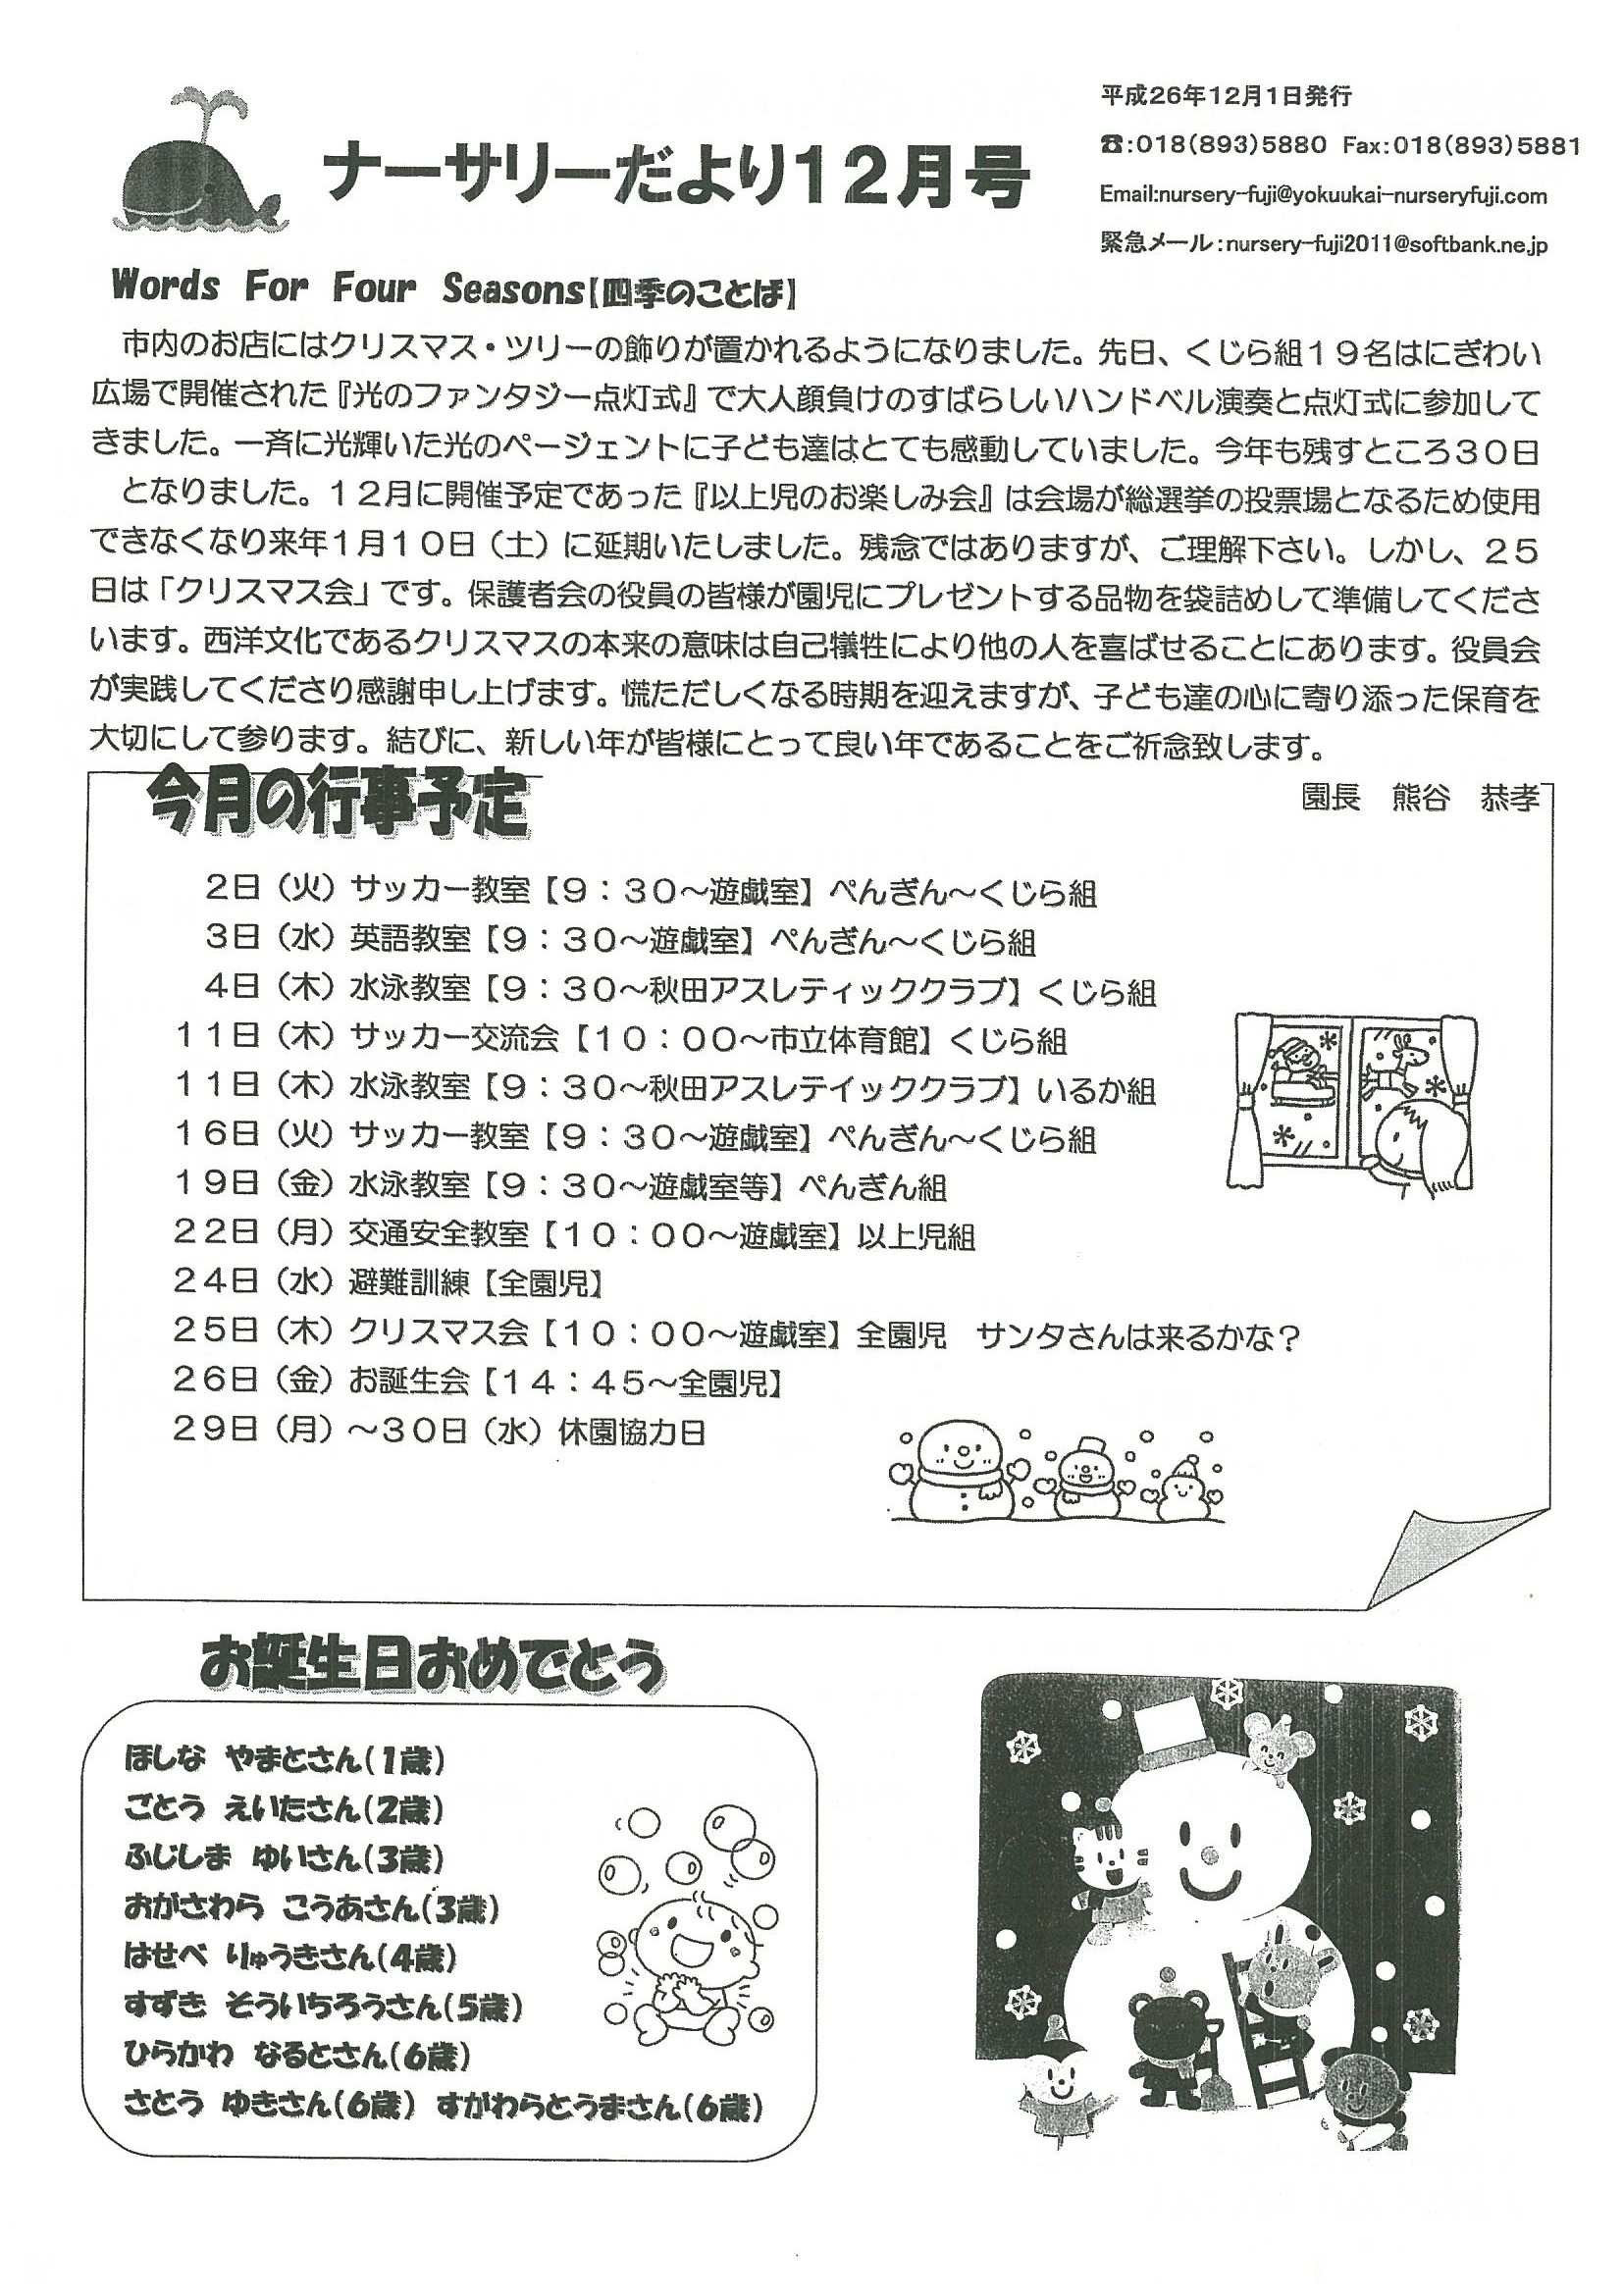 平成26年12月1日発行
☎:018(893)5880 Fax:018(893)5881
ナーサリーだより12月号
Email:nursery-fuji@yokuukai-nurseryfuji.com
緊急メール:nursery-fuji2011@softbank.ne.jp
Words For Four Seasons【四季のことば】
市内のお店にはクリスマス・ツリーの飾りが置かれるようになりました。先日、くじら組19名はにぎわい
広場で開催された『光のファンタジー点灯式』で大人顔負けのすばらしいハンドベル演奏と点灯式に参加して
きました。一斉に光輝いた光のページェントに子ども達はとても感動していました。今年も残すところ30日
となりました。12月に開催予定であった『以上児のお楽しみ会』は会場が総選挙の投票場となるため使用
できなくなり来年1月10日(土)に延期いたしました。残念ではありますが、ご理解下さい。しかし、25
日は「クリスマス会」です。保護者会の役員の皆様が園児にプレゼントする品物を袋詰めして準備してくださ
います。西洋文化であるクリスマスの本来の意味は自己犠牲により他の人を喜ばせることにあります。役員会
が実践してくださり感謝申し上げます。慌ただしくなる時期を迎えますが、子ども達の心に寄り添った保育を
大切にして参ります。結びに、新しい年が皆様にとって良い年であることをご祈念致します。
園長 熊谷 恭孝
今月の行事予定
2日(火)サッカー教室【9:30~遊戯室】ぺんぎん~くじら組
3日(水)英語教室【9:30~遊戯室】ぺんぎん~くじら組
4日(木)水泳教室【9:30~秋田アスレティッククラブ】くじら組
11日(木)サッカー交流会【10:00~市立体育館】くじら組
11日(木)水泳教室【9:30~秋田アスレテイッククラブ】いるか組
16日(火)サッカー教室【9:30~遊戯室】ぺんぎん~くじら組
19日(金)水泳教室【9:30~遊戯室等】ぺんぎん組
22日(月)交通安全教室【10:00~遊戯室】以上児組
24日(水)避難訓練【全園児】
25日(木)クリスマス会【10:00~遊戯室】全園児 サンタさんは来るかな?
26日(金)お誕生会【14:45~全園児】
29日(月)~30日(水)休園協力日
お誕生日おめでとう
ほしな やまとさん(1歳)
ごとう えいたさん(2歳)
ふじしま ゆいさん(3歳)
おがさわら こうあさん(3歳)
はせべ りゅうきさん(4歳)
すずき そういちろうさん(5歳)
ひらかわ なるとさん(6歳)
さとう ゆきさん(6歳) すがわらとうまさん(6歳)